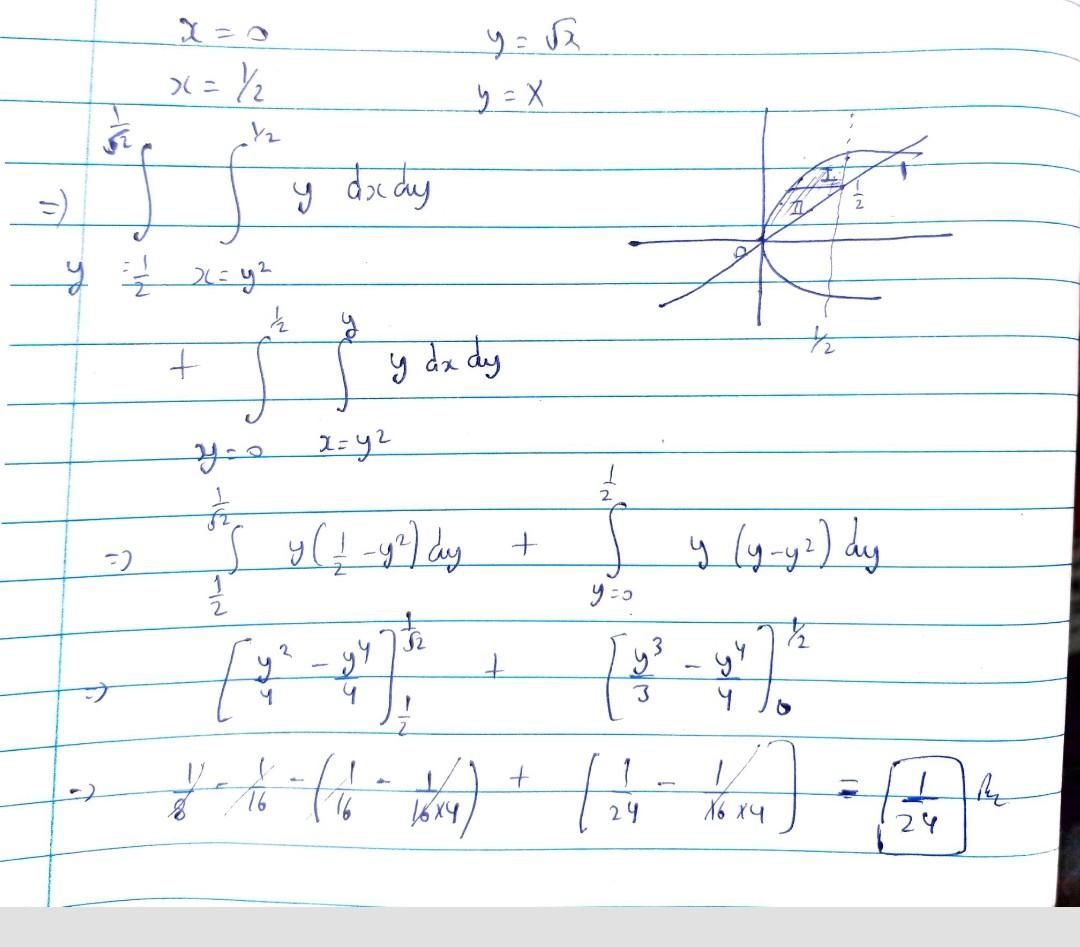 x = 0 y = √x
x = 1/2 y = x
⇒ ∫_{y = 1/2}^{1/√2} ∫_{x = y²}^{1/2} y dx dy
+ ∫_{y=0}^{1/2} ∫_{x=y²}^{y} y dx dy
⇒ ∫_{1/2}^{1/√2} y(1/2 - y²) dy + ∫_{y=0}^{1/2} y (y-y²) dy
⇒ [y²/4 - y⁴/4]_{1/2}^{1/√2} + [y³/3 - y⁴/4]_{0}^{1/2}
⇒ 1/8 - 1/16 - (1/16 - 1/16×4) + [1/24 - 1/16×4] = 1/24
I
II
1/2
0
1/2